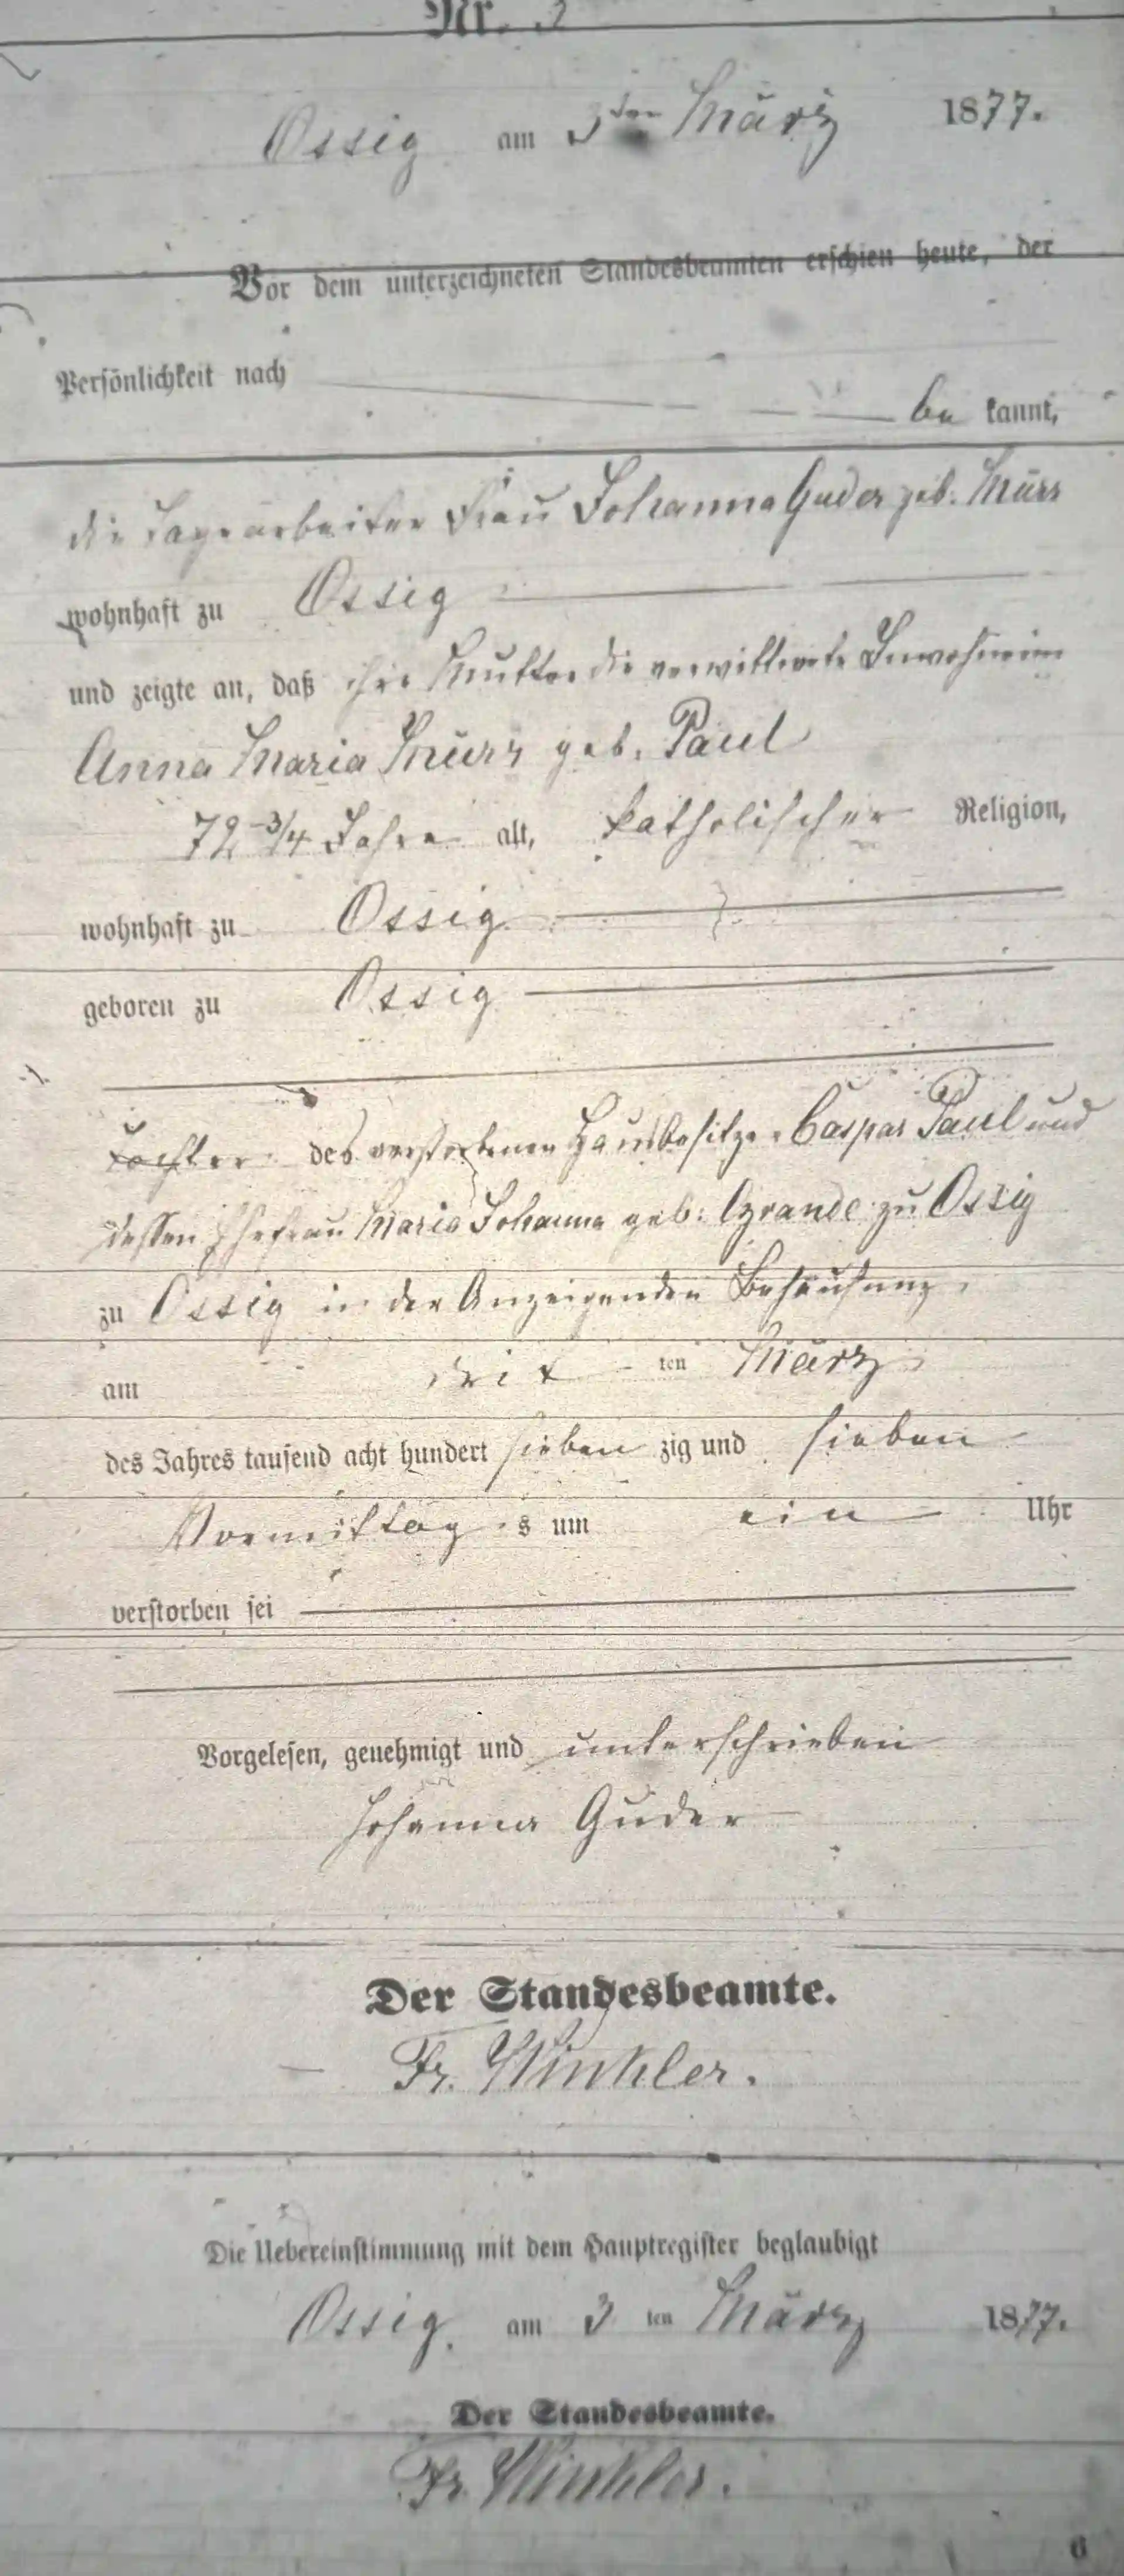 Nr. 3
Ossig am 3ten März 1877.
Vor dem unterzeichneten Standesbeamten erschien heute, der
Persönlichkeit nach
be kannt,
die Tagearbeiter Frau Johanna Guder geb. Mürr
wohnhaft zu Ossig
und zeigte an, daß ihre Mutter die verwittwete Inwohnerin
Anna Maria geb. Paul
72 3/4 Jahre alt, katholischer Religion,
wohnhaft zu Ossig
geboren zu Ossig
Tochter des verstorbenen Hausbesitzer Caspar Paul und
dessen Ehefrau Maria Johanna geb: zu Ossig
zu Ossig in der Anzeigenden Behausung
am drit ten März
des Jahres tausend acht hundert sieben zig und sieben
Vormittag s um ein Uhr
verstorben sei
Vorgelesen, genehmigt und unterschrieben
Johanna Guder
Der Standesbeamte.
Fr. Winkler.
Die Uebereinstimmung mit dem Hauptregister beglaubigt
Ossig am 3 ten März 1877.
Der Standesbeamte.
Fr. Winkler.
6